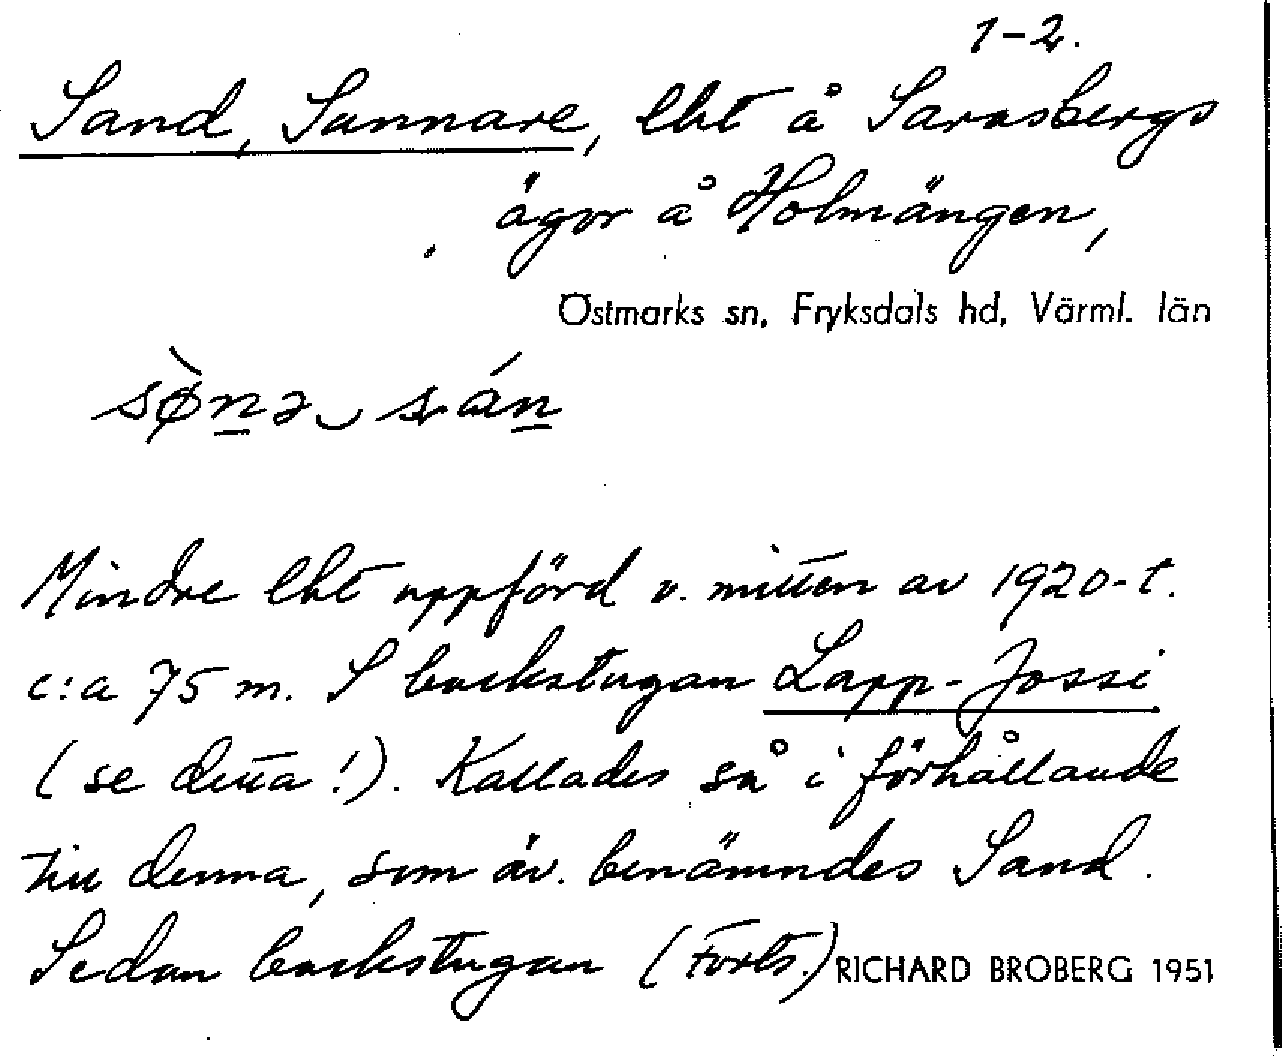 1-2.
Sand, Sunnare, lht å Sarvsbergs
ägor å Holmängen,
Östmarks sn, Fryksdals hd, Värml. län
sø̀n̲ə‿sán̲
Mindre lht uppförd v. mitten av 1920-t.
c:a 75 m. S backstugan Lapp-Jossi
(se detta!). Kallades så i förhållande
till denna, som äv. benämndes Sand.
Sedan backstugan (Forts.) RICHARD BROBERG 1951